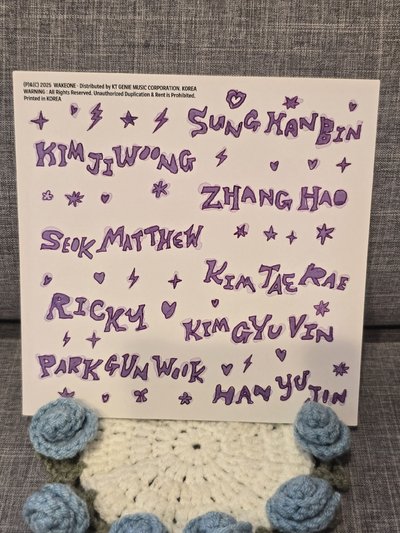 (P)&(C) 2025 WAKEONE · Distributed by KT GENIE MUSIC CORPORATION. KOREA
WARNING : All Rights Reserved. Unauthorized Duplication & Rent is Prohibited.
Printed in KOREA
SUNG HAN BIN
KIM JIWOONG
ZHANG HAO
SEOK MATTHEW
KIM TAE RAE
RICKY
KIM GYU VIN
PARK GUN WOOK
HAN YU JIN